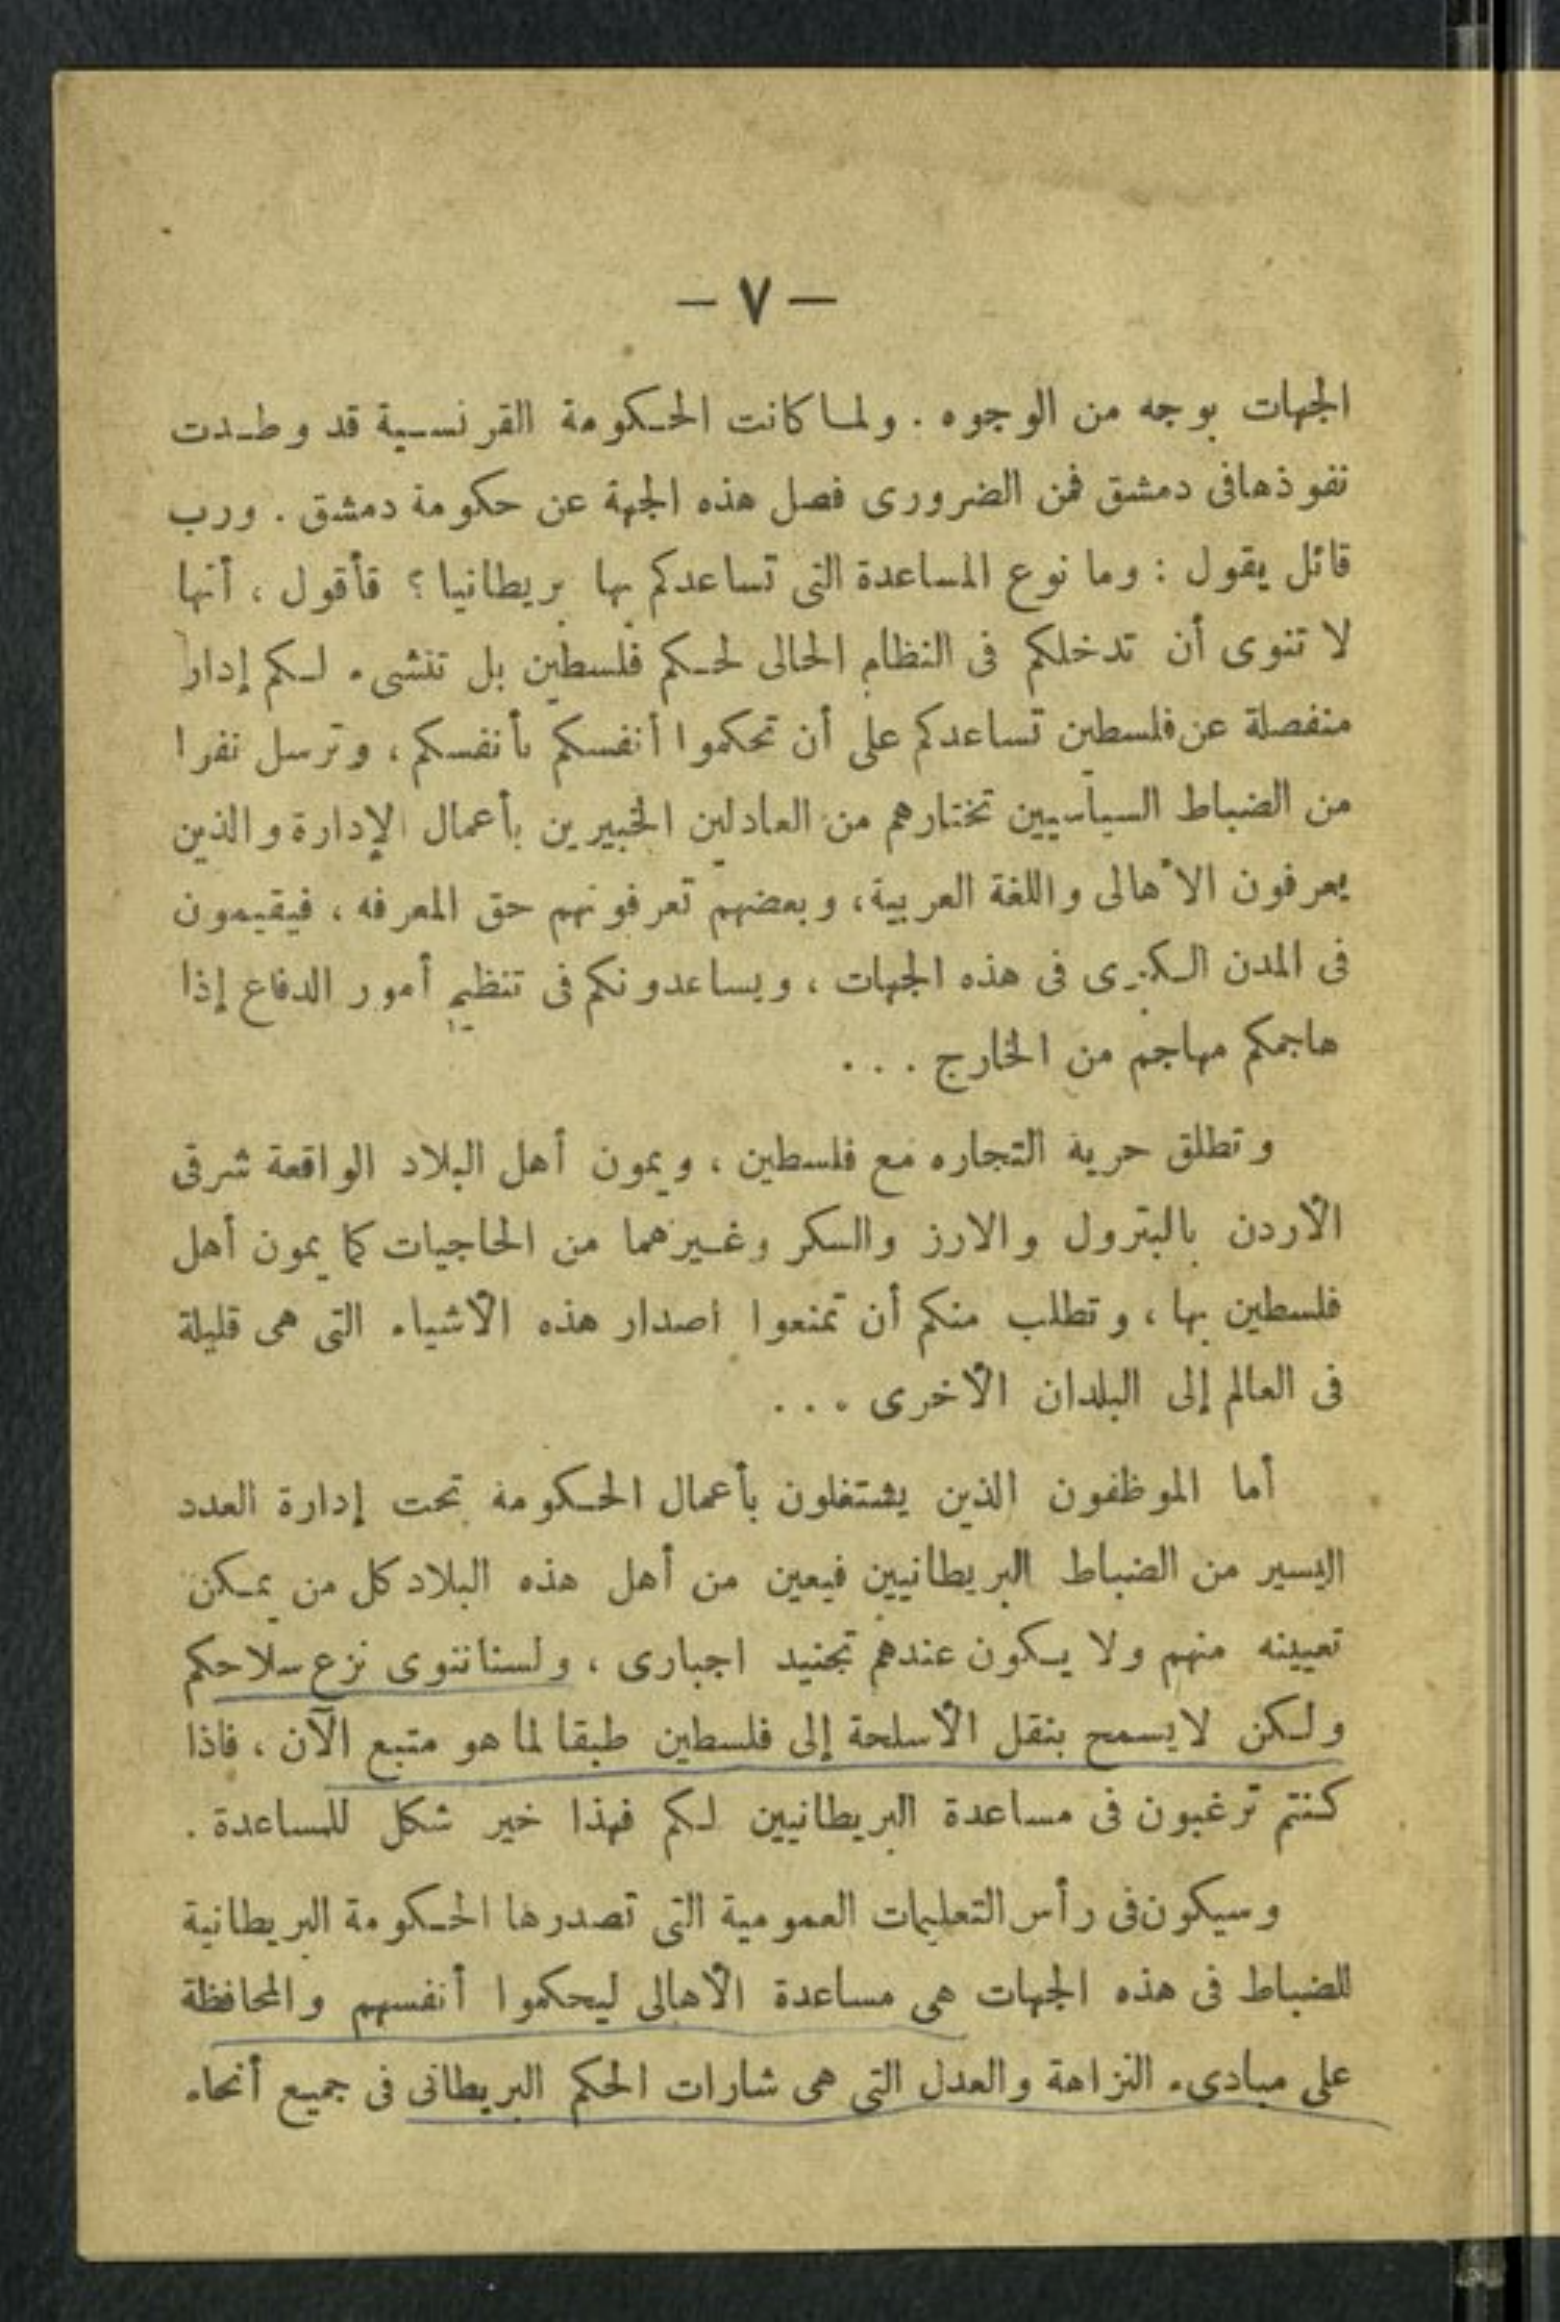 — ٧ —
الجهات بوجه من الوجوه . ولما كانت الحكومة القرنسية قد وطدت
نفوذها فى دمشق فمن الضرورى فصل هذه الجهة عن حكومة دمشق . ورب
قائل يقول : وما نوع المساعدة التى تساعدكم بها بريطانيا ؟ قأقول ، أنها
لا تنوى أن تدخلكم فى النظام الحالى لحكم فلسطين بل تنشىء لكم إدار
منفصلة عن فلسطين تساعدكم على أن تحكموا أنفسكم بأنفسكم ، وترسل نفرا
من الضباط السياسيين تختارهم من العادلين الخبيرين بأعمال الإدارة والذين
يعرفون الأهالى واللغة العربية ، وبعضهم تعرفونهم حق المعرفه ، فيقيمون
فى المدن الكبرى فى هذه الجهات ، ويساعدونكم فى تنظيم أمور الدفاع إذا
هاجمكم مهاجم من الخارج . . .
وتطلق حرية التجاره مع فلسطين ، ويمون أهل البلاد الواقعة شرقى
الأردن بالبترول والارز والسكر وغيرهما من الحاجيات كما يمون أهل
فلسطين بها ، وتطلب منكم أن تمنعوا اصدار هذه الأشياء التى هى قليلة
فى العالم إلى البلدان الأخرى . . .
أما الموظفون الذين يشتغلون بأعمال الحكومة تحت إدارة العدد
اليسير من الضباط البريطانيين فيعين من أهل هذه البلاد كل من يمكن
تعيينه منهم ولا يكون عندهم تجنيد اجبارى ، ولسنا ننوى نزع سلاحكم
ولكن لا يسمح بنقل الأسلحة إلى فلسطين طبقا لما هو متبع الآن ، فاذا
كنتم ترغبون فى مساعدة البريطانيين لكم فهذا خير شكل للمساعدة .
وسيكون فى رأس التعليمات العمومية التى تصدرها الحكومة البريطانية
للضباط فى هذه الجهات هى مساعدة الأهالى ليحكموا أنفسهم والمحافظة
على مبادىء النزاهة والعدل التى هى شارات الحكم البريطانى فى جميع أنحاء